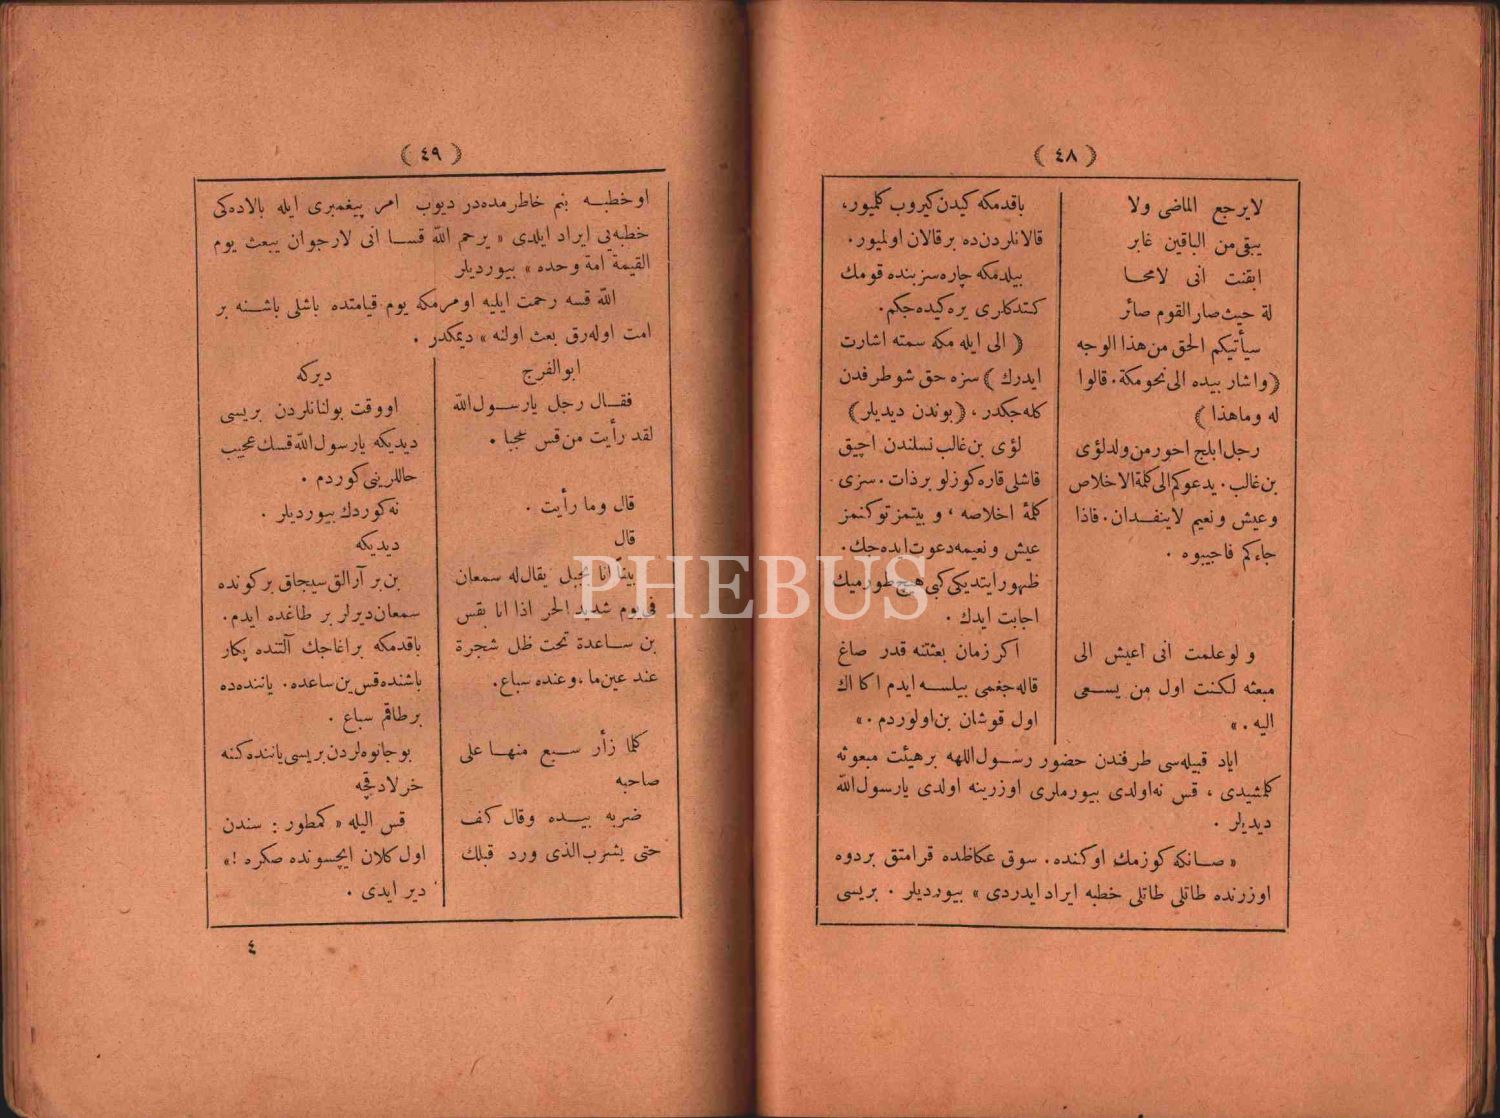 ﴿ ٤٨ ﴾
لايرجع الماضى ولا
يبقى من الباقين غابر
ايقنت انى لامحا
لة حيث صار القوم صائر
سيأتيكم الحق من هذا الوجه
( واشار بيده الى نحو مكة . قالوا
له وماهذا )
رجل ابلج احور من ولد لؤى
بن غالب . يدعوكم الى كلمة الاخلاص
وعيش ونعيم لاينفدان . فاذا
جاءكم فاجيبوه .
ولو علمت انى اعيش الى
مبعثه لكنت اول من يسعى
اليه . »
باقدمكه كيدن كيروب كلميور،
قالانلردن ده برقالان اولميور .
بيلدمكه چاره سز بنده قومك
كتدكلرى يره كيده جكم .
( الى ايله مكه سمته اشارت
ايدرك ) سزه حق شو طرفدن
كله جكدر ، ( بوندن ديديلر )
لؤى بن غالب نسلندن اچيق
قاشلى قاره كوزلو برذات . سزى
كلمۀ اخلاصه ، و بيتمز توكنمز
عيش و نعيمه دعوت ايده جك .
ظهور ايتديكى كبى هيچ طورميك
اجابت ايدك .
اكر زمان بعثتنه قدر صاغ
قاله جغمى بيلسه ايدم اكا اك
اول قوشان بن اولوردم . »
اياد قبيله سى طرفندن حضور رسول اللهه برهيئت مبعوثه
كلمشيدى ، قس نه اولدى بيورملرى اوزرينه اولدى يارسول الله
ديديلر .
« صانكه كوزمك اوكنده . سوق عكاظده قرامتق بردوه
اوزرنده طاتلى طاتلى خطبه ايراد ايدردى » بيورديلر . بريسى
﴿ ٤٩ ﴾
او خطبه بنم خاطرمده در ديوب امر پيغمبرى ايله بالاده كى
خطبه يى ايراد ايلدى « يرحم الله قسا انى لارجوان يبعث يوم
القيمة امة وحده » بيورديلر
الله قسه رحمت ايليه اومرمكه يوم قيامتده باشلى باشنه بر
امت اوله رق بعث اولنه » ديمكدر .
ابوالفرج
فقال رجل يارسول الله
لقد رأيت من قس عجبا .
قال وما رأيت .
قال
بينا انا بجبل يقال له سمعان
فى يوم شديد الحر اذا انا بقس
بن ساعدة تحت ظل شجرة
عند عين ما ، وعنده سباع .
كلما زأر سبع منها على
صاحبه
ضربه بيده وقال كف
حتى يشرب الذى ورد قبلك
ديركه
او وقت بولنانلردن بريسى
ديديكه يارسول الله قسك عجيب
حاللرينى كوردم .
نه كوردك بيورديلر .
ديديكه
بن بر آرالق سيجاق بركونده
سمعان ديرلر بر طاغده ايدم .
باقدمكه براغاجك آلتنده پكار
باشنده قس بن ساعده . ياننده ده
برطاقم سباع .
بو جانوه لردن بريسى ياننده كنه
خرلادقچه
قس اليله « كمطور : سندن
اول كلان ايچسونده صكره ! »
دير ايدى .
٤
PHEBUS